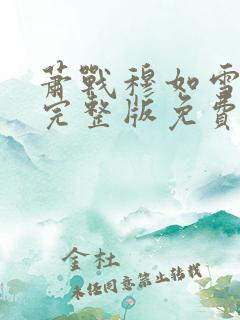 萧戰穆如雪
完整版免費
金杜
未经同意禁止转载